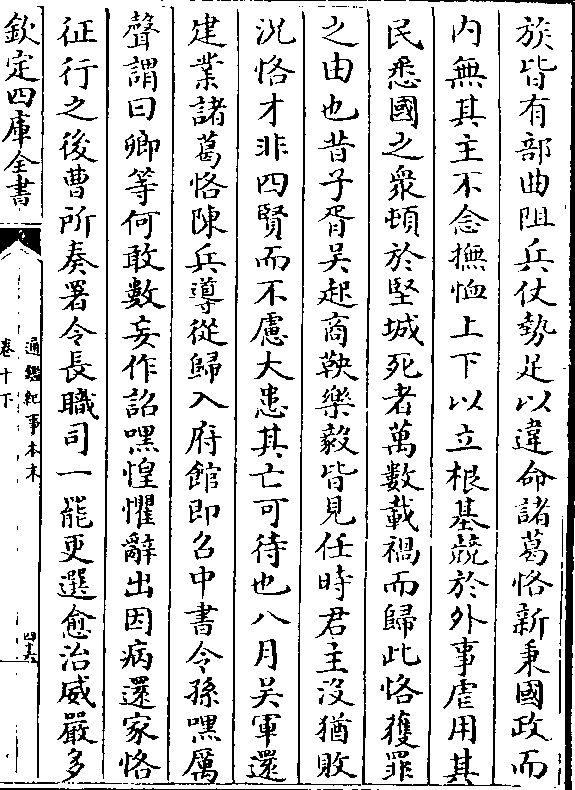 族皆有部曲阻兵仗勢足以違命諸葛恪新秉國政而
内無其主不念撫恤上下以立根基競於外事虐用其
民悉國之衆頓於堅城死者萬數載禍而歸此恪獲罪
之由也昔子胥吴起商鞅樂毅皆見任時君主沒猶敗
況恪才非四賢而不慮大患其亡可待也八月吴軍還
建業諸葛恪陳兵導從歸入府館即召中書令孫嘿厲
聲謂曰卿等何敢數妄作詔嘿惶懼辭出因病還家恪
征行之後曹所奏署令長職司一罷更選愈治威嚴多
欽定四庫全書
通鑑紀事本末
卷十下